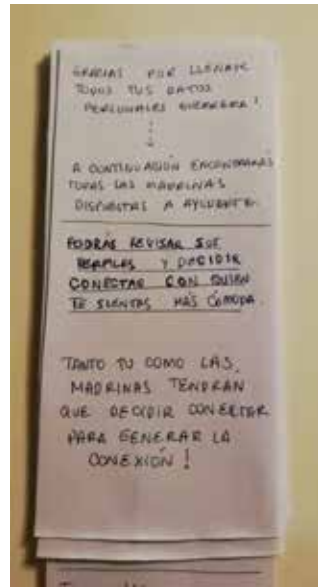 GRACIAS POR LLENAR
TODOS TUS DATOS
PERSONALES GUERRERA!
A CONTINUACIÓN ENCONTRARÁS
TODAS LAS MADRINAS
DISPUESTAS A AYUDARTE.
PODRÁS REVISAR SUS
PERFILES Y DECIDIR
CONECTAR CON QUIEN
TE SIENTAS MÁS CÓMODA
TANTO TU COMO LAS
MADRINAS TENDRAN
QUE DECIDIR CONECTAR
PARA GENERAR LA
CONEXIÓN!